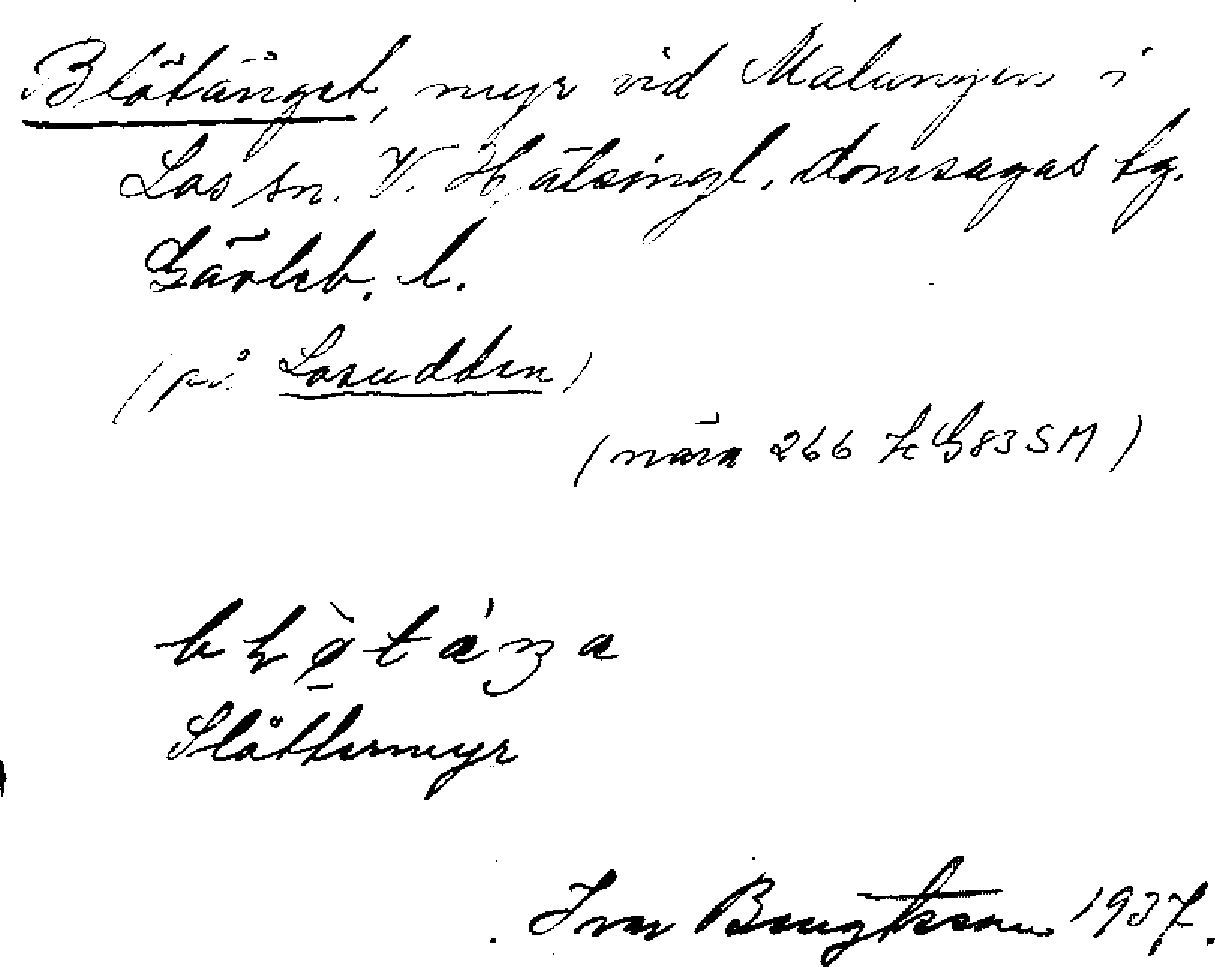 Blötänget, myr vid Malungen i
Los sn. V. Hälsingl. domsagas tg.
Gävleb. l.
(på Losudden)
(nära 266 k G83SM)
Slåttermyr
Ivar Bengtsson 1937.